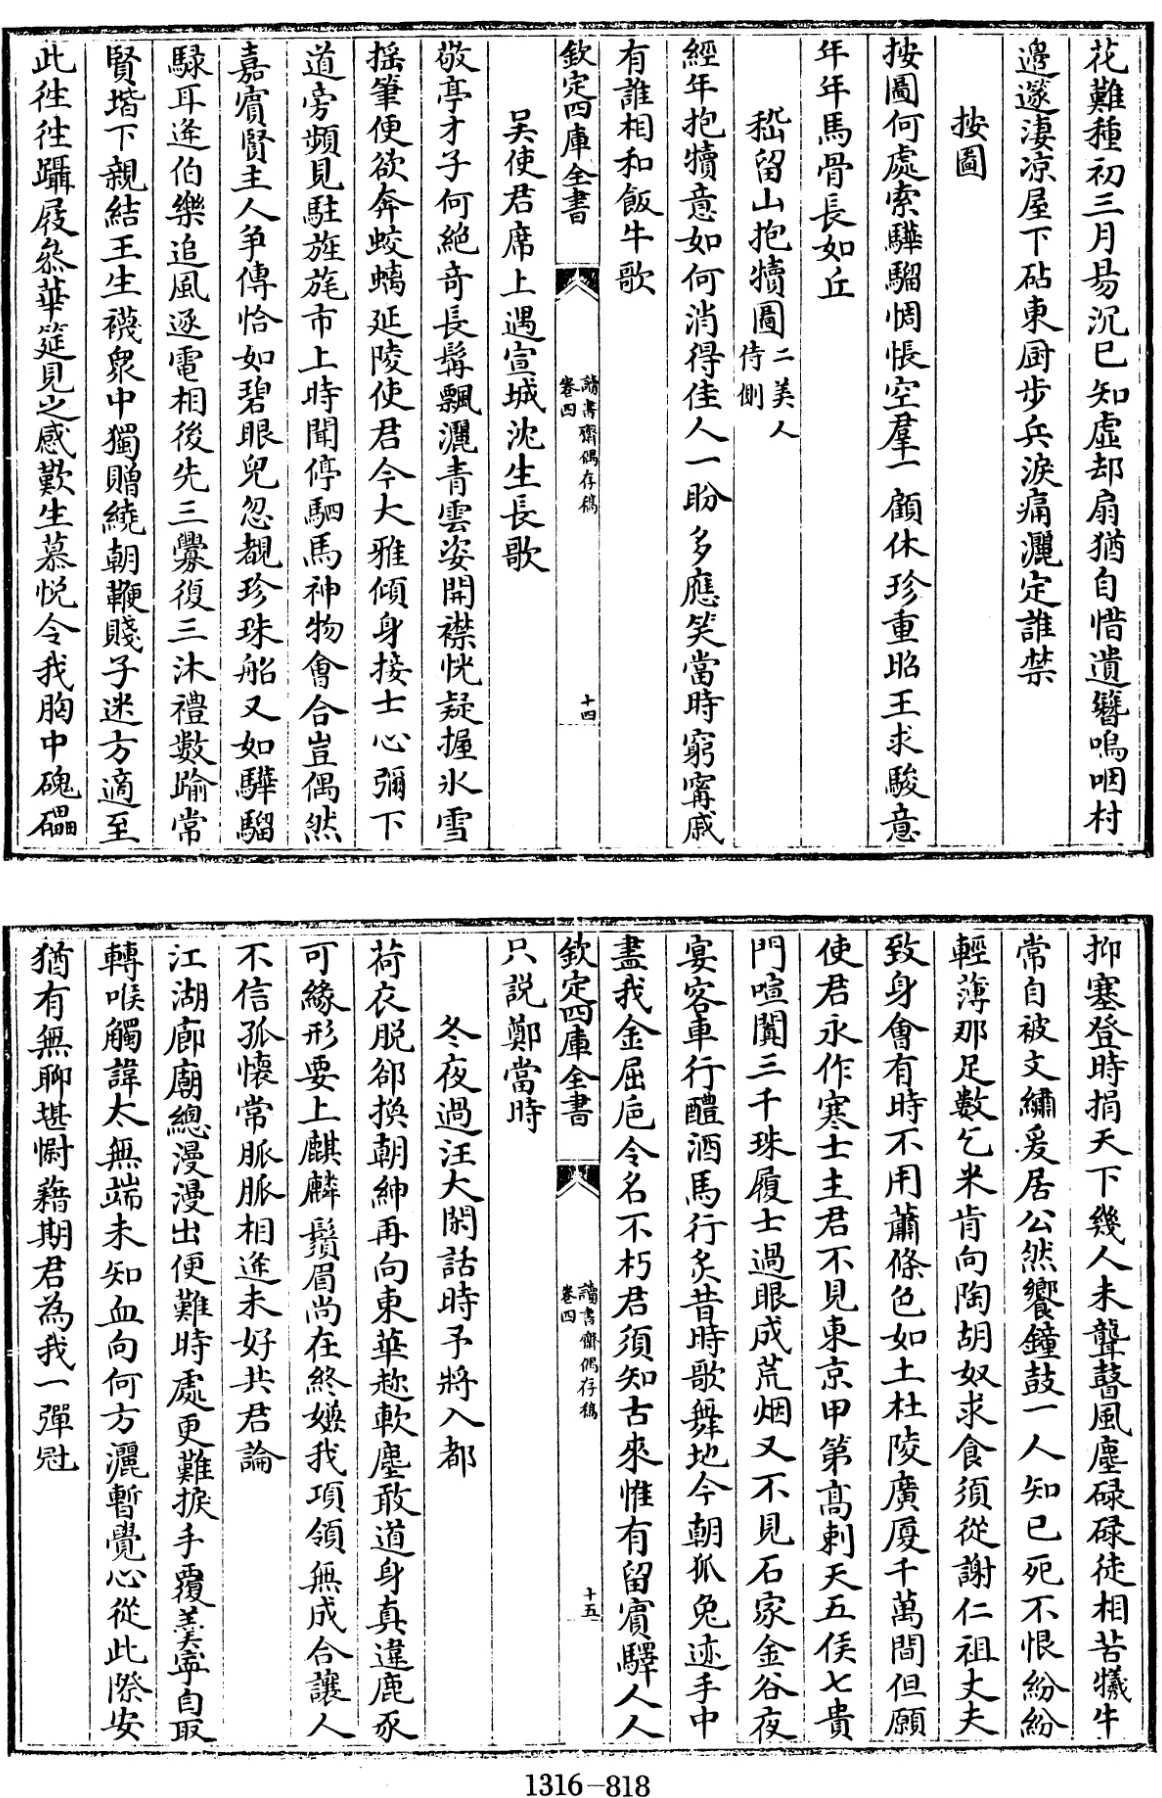 花難種初三月易沉已知虛却扇猶自惜遺簪嗚咽村
邉邃淒凉屋下砧東厨步兵淚痛灑定誰禁
按圖
按圖何處索驊騮惆悵空羣一顧休珍重昭王求駿意
年年馬骨長如丘
嵇留山抱犢圖二美人侍側
經年抱犢意如何消得佳人一盼多應笑當時窮寗戚
有誰相和飯牛歌
欽定四庫全書
讀書齋偶存稿
卷四
十四
吳使君席上遇宣城沈生長歌
敬亭才子何絶奇長髯飄灑青雲姿開襟恍疑握氷雪
揺筆便欲奔蛟螭延陵使君今大雅傾身接士心彌下
道旁頻見駐旌旄市上時聞停駟馬神物會合豈偶然
嘉賓賢主人争傳恰如碧眼兒忽覩珍珠船又如驊騮
騄耳逄伯樂追風逐電相後先三釁復三沐禮數踰常
賢堦下親結王生襪衆中獨贈繞朝鞭賤子迷方適至
此徃徃躡屐叅華筵見之感歎生慕悦令我胸中磈礧
抑塞登時捐天下幾人未聾瞽風塵碌碌徒相苦犧牛
常自被文繡爰居公然饗鐘鼓一人知已死不恨紛紛
輕薄那足數乞米肯向陶胡奴求食須從謝仁祖丈夫
致身會有時不用蕭條色如土杜陵廣厦千萬間但願
使君永作寒士主君不見東京甲第髙刺天五侯七貴
門喧闐三千珠履士過眼成荒烟又不見石家金谷夜
宴客車行醴酒馬行炙昔時歌舞地今朝狐兔迹手中
盡我金屈巵令名不朽君須知古來惟有留賓驛人人
欽定四庫全書
讀書齋偶存稿
卷四
十五
只説鄭當時
冬夜過汪大閑話時予將入都
荷衣脱卻換朝紳再向東華趂軟塵敢道身真違鹿豕
可緣形要上麒麟鬚眉尚在終嫌我項領無成合讓人
不信孤懷常脈脈相逄未好共君論
江湖廊廟總漫漫出便難時處更難捩手覆羹寧自取
轉喉觸諱太無端未知血向何方灑暫覺心從此際安
猶有無聊堪慰藉期君為我一彈冠
1316-818